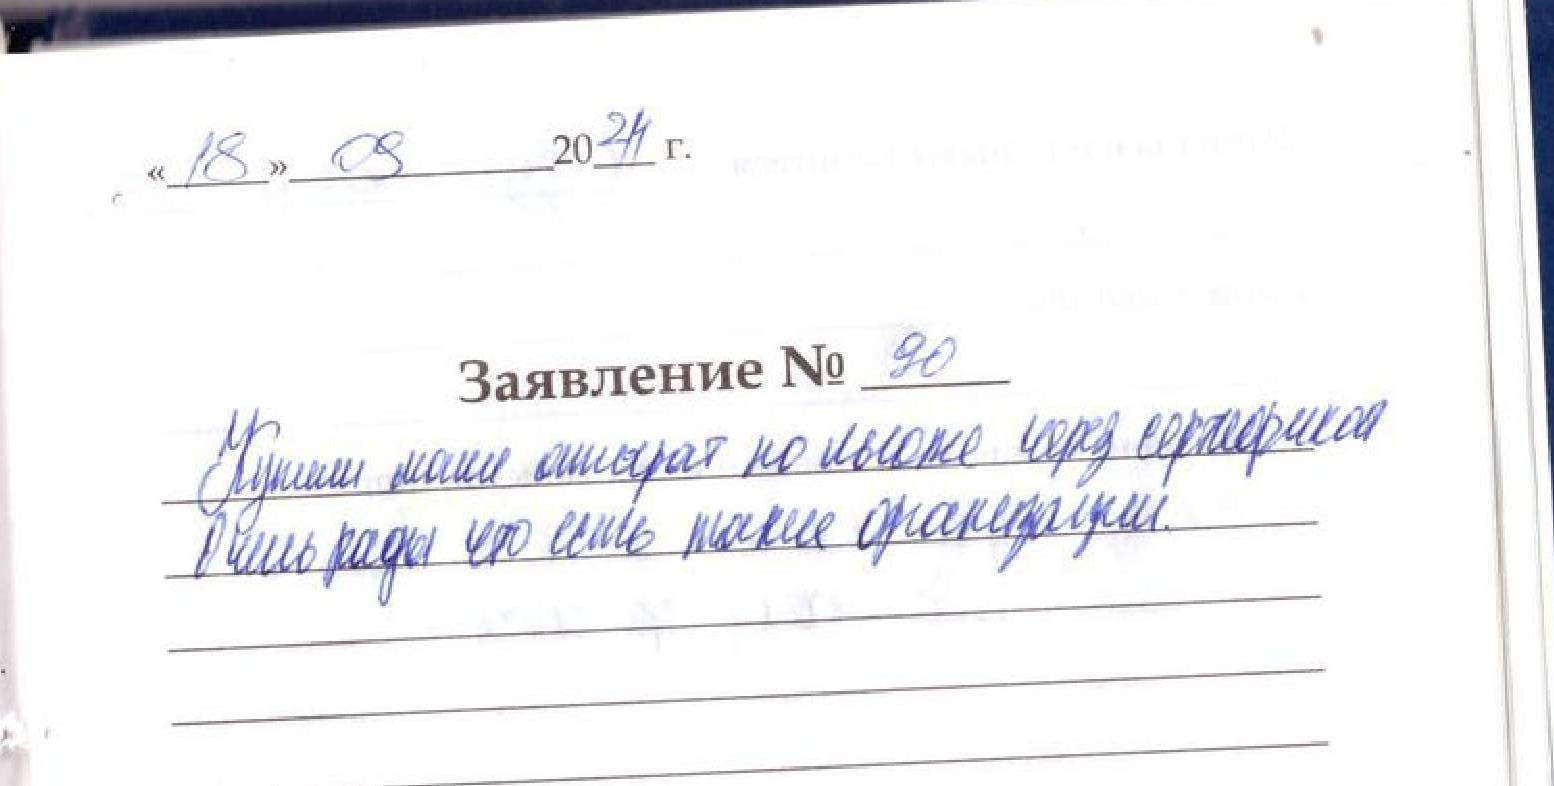 «18» 09 2024 г.
Заявление № 90
Купили маме аппарат по льготе через сертификат
Очень рады что есть такие организации.